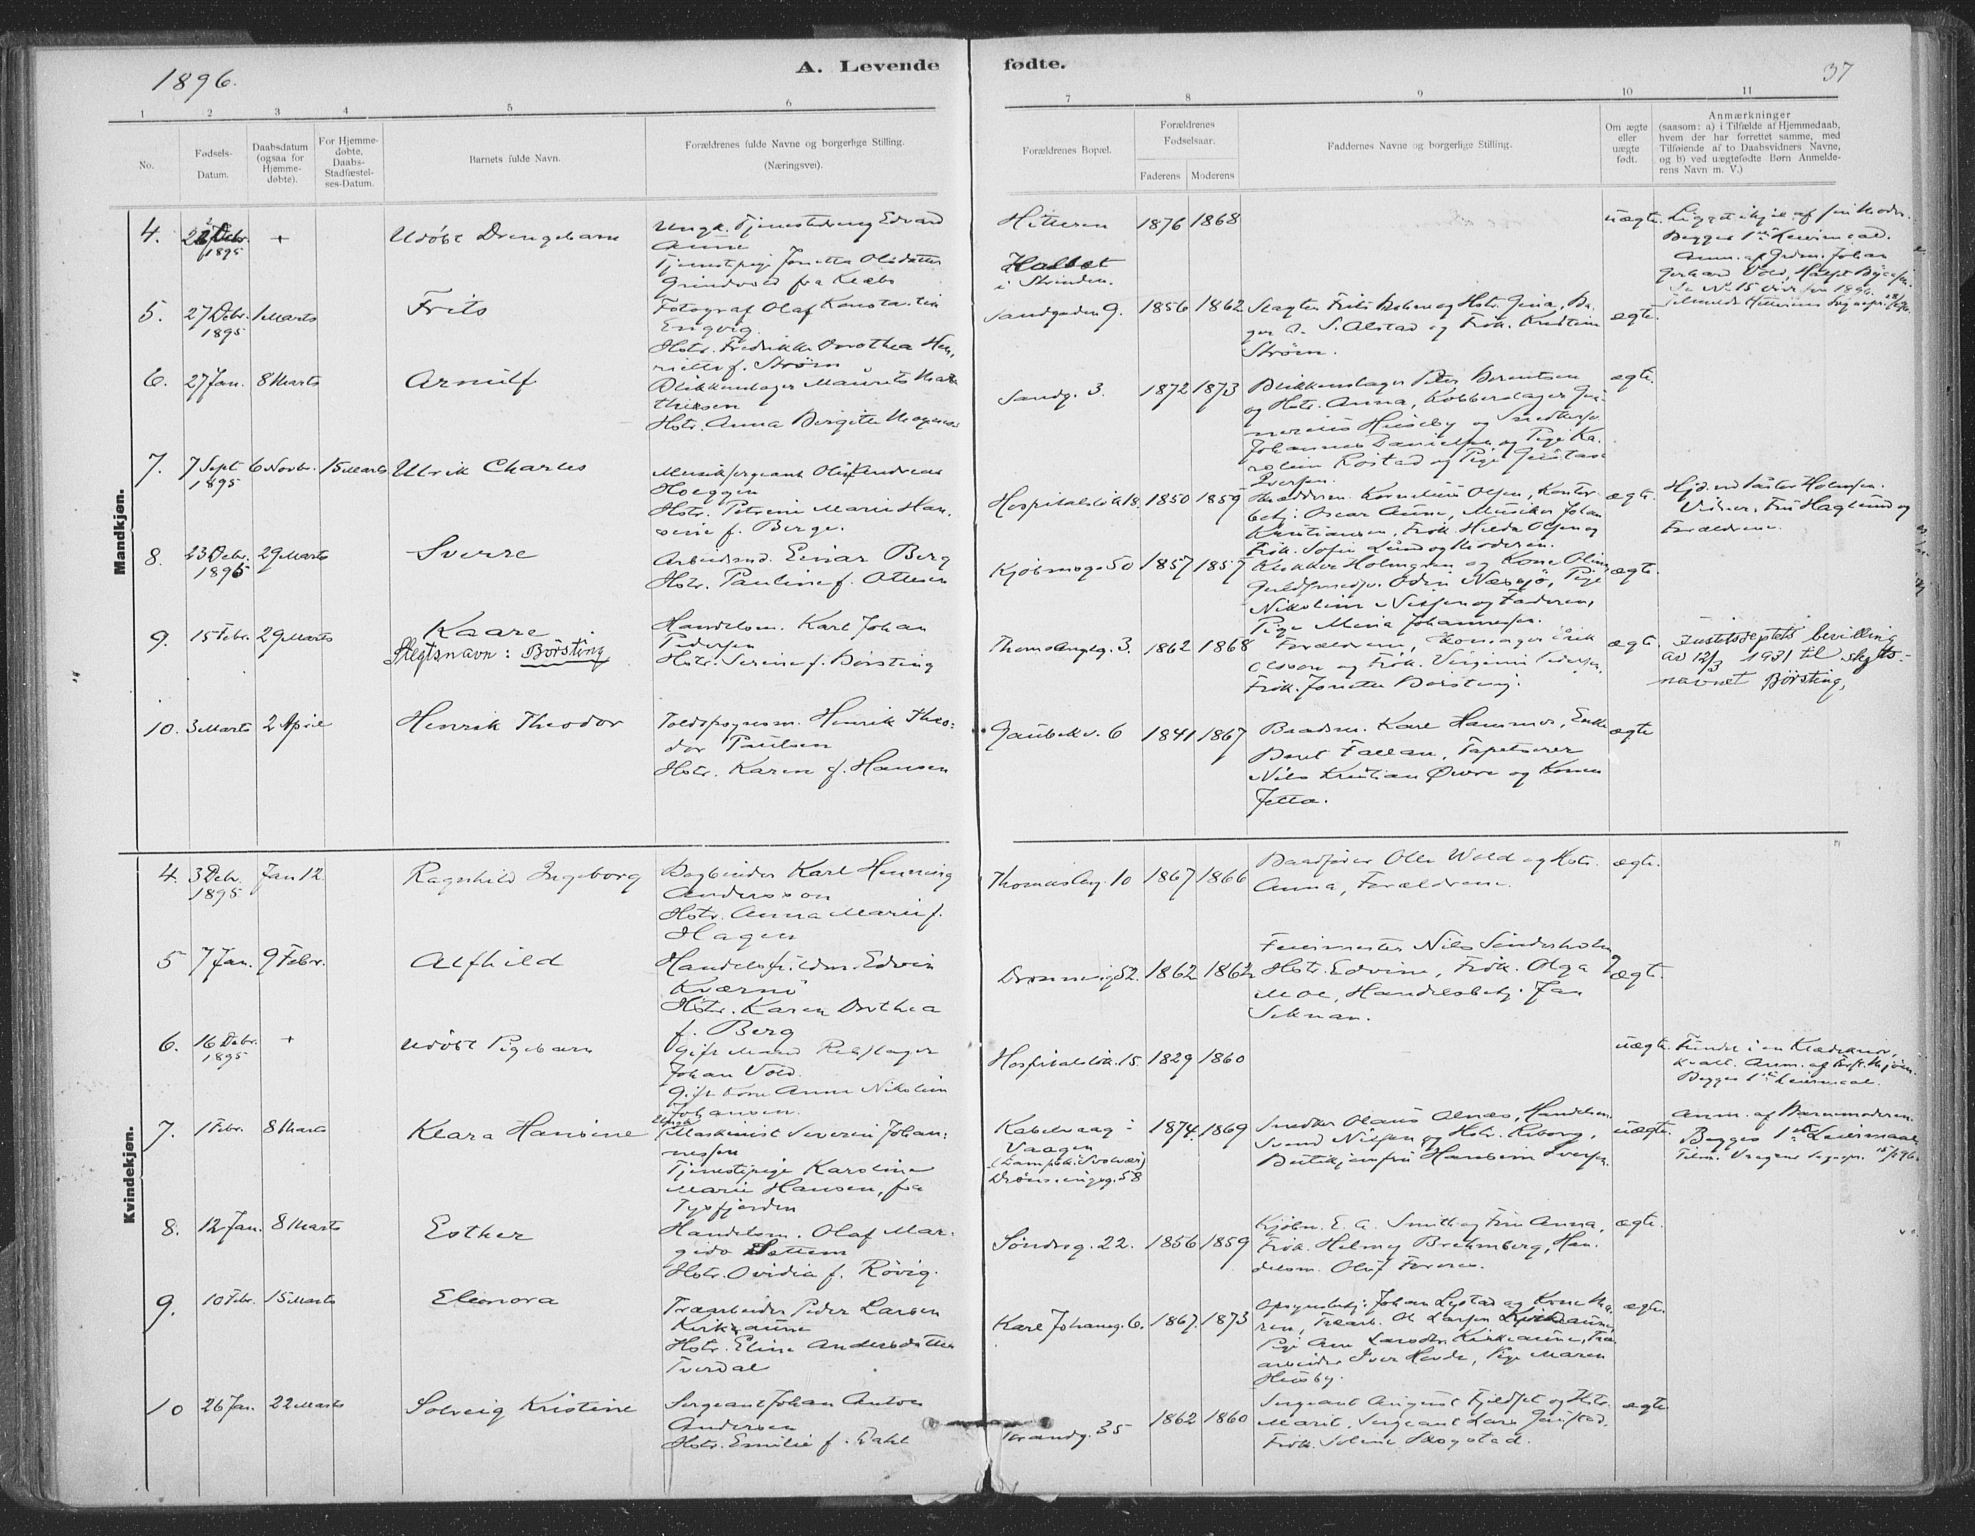 1896.
A. Levende fødte.
37
1 2 3 4 5 6 7 8 9 10 11
No.
Fødsels-Datum.
Daabsdatum (ogsaa for Hjemme-døbte).
For Hjemme-døbte, Daabs-Stadfæstel-ses-Datum.
Barnets fulde Navn.
Forældrenes fulde Navne og borgerlige Stilling.
(Næringsvei).
Forældrenes Bopæl.
Forældrenes Fødselsaar.
Faderens Moderens
Faddernes Navne og borgerlige Stilling.
Om ægte eller uægte født.
Anmærkninger
(saasom: a) i Tilfælde af Hjemmedaab, hvem der har forrettet samme, med Tilføiende af to Daabsvidners Navne, og b) ved uægtefødte Børn Anmelde-rens Navn m. V.)
Mandkjøn.
4. Debr. 1895 + Udöbt Drengebarn
Ungk. Tjenestedreng Edvard
Aune
Tjenestepige Jonetta Olsdatter
Grindvold fra Klæbo
Hitteren
i Strinden.
1876 1868 uægte.
Begges 1ste Leiermaal.
5. 27 Debr. 1895 1 Marts Frits
Fotograf Olaf Konstantin
Engvig.
Hstr. Fredrikke Dorothea Hen,
riette f. Strøm
Sandgaden 9. 1856 1862
Strøm.
ægte.
6. 27 Jan. 8 Marts Arnulf
Blikkenslager Maurits Mat
thisen
Hstr. Anna Birgitte Mogensen
Sandg. 3. 1872 1873
Blikkenslager Peter Berentsen
og Hstr. Anna, Kobberslager
Husby og
Johannes Danielsen og Pige Ka.
Rostad og Pige Gustava
Iversen.
ægte.
7. 7 Sept 1895 6 Novbr. 15 Marts Ulrik Charles
Musiksergeant Oluf Andreas
Hoeggen
Hstr. Petrine Marie Han,
sine f. Berge.
Hospitalslökk. 18. 1850 1859
Kornelius Olsen, Kontor
betj: Oscar Aune, Musiker Johan
Kristiansen, Frök. Hilda Olsen og
Frök. Sofie Lund og Moderen.
ægte.
Hjd. ved Pastor Holmsen.
Vidner, Fru Haglund og
Forældrene.
8. 23 Debr. 1895 29 Marts Sverre
Arbeidsmd. Einar Berg
Hstr. Pauline f. Ottesen
Kjøbmansg. 50 1857 1857
Klokker Holmgren og Kone Oline,
Guldsmedsv. Odin Næssjø, Pige
Nikoline Nissen og Faderen,
Pige Mina Johannessen.
ægte.
9. 15 Febr. 29 Marts Kaare
Slegtsnavn: Börsting
Handelsm. Karl Johan
Pedersen
Hstr. Serine f. Börsting
Thomas Angelsg. 3. 1862 1868
Forældrene, Erik
Olsson og Frök. Virginie Pedersen,
Frök. Jonette Börsting.
ægte.
Justitsdeptets bevilling
av 12/3 1931 til slegts-
navnet Børsting,
10. 3 Marts 2 April Henrik Theodor
Toldopsynsm. Henrik Theo:
dor Paulsen
Hstr. Karen f. Hansen
Gaubekv. 6 1841 1867
Baadsm. Karl Hammer, Enke
Beret Fallan, Tapetserer
Nils Kristian Øwre og Kone
Jetta.
ægte
Kvindekjøn.
4. 3 Debr. 1895 Jan 12. Ragnhild Ingeborg
Bogbinder Karl Henning
Andersson
Hstr. Anna Marie f.
Hagen
Thomas Ang. 10 1867 1866
Baadfører Olle Wold og Hstr.
Anna, Forældrene.
ægte.
5 7 Jan. 9 Febr. Alfhild
Handelsfuldm. Edvin
Kværnö
Hstr. Karen Dorthea
f. Berg
Dronningg. 52. 1862 1862
Feiermester Nils Sönderholm og
Hstr. Edvine, Frök. Olga
Moe, Handelsbetj. Jan
Seknan.
ægte.
6. 16 Debr. 1895 + Udöbt Pigebarn
Gift Mand Rebslager
Johan Vold.
Gift Kone Anne Nikoline
Johansen.
Hospitalslökk. 15. 1829 1860
uægte.
Begges 1ste Leiermaal.
7. 1 Febr. 8 Marts Klara Hansine
Maskinist Severin Johan:
nessen
Tjenestepige Karoline
Marie Hansen, fra
Tysfjorden
Kabelvaag i
Vaagen
Dronningensg. 58
1874. 1869
Snedker Olaus Olnæs, Handelsm.
Svend Nilsen og Hstr. Reborg,
Butikjomfru Hansine Iversen.
uægte.
Anm. af Barnemoderen.
Begges 1ste Leiermaal.
8. 12 Jan. 8 Marts Esther
Handelsm. Olaf Mar.
gido Sattem
Hstr. Ovidia f. Rövig.
Søndreg. 22. 1856 1859
Kjöbm. E. A. Smith og Fru Anna,
Frök. Helmey Brehmberg, Han.
delsm. Oluf
ægte.
9. 10 Febr. 15 Marts Eleonora
Træarbeider Peder Larsen
Kirkaune
Hstr. Eline Andersdatter
Tverdal
Karl Johansg. 6. 1867. 1873
Opsynsbetj: Johan Lystad og Kone Ma.
ren, Træarb. Ol. Larsen Kirkaune
Pige Ane Larsdtr. Kirkeaune, Træ
arbeider Iver Hovde, Pige Maren
Husby.
ægte.
10 26 Jan. 22 Marts Solveig Kristine
Sergeant Johan Anton
Andersen
Hstr. Emilie f. Dahl
Strandg. 35 1862 1860
Sergeant August Fjeldset og Hstr.
Marit, Sergeant Lars
Frök. Skogstad.
ægte